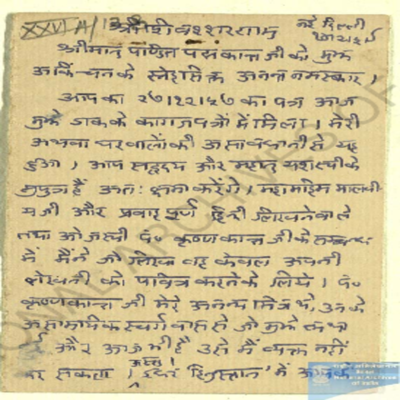 XXVI/A/1
नई दिल्ली
श्रीमान् पण्डित पद्मकान्त जी को मुझ
अकिंचन के स्नेहसिक्त अनन्त नमस्कार।
आप का २७।१२।५७ का पत्र आज
मुझे डाक के कागज पत्रों में मिला। मेरी
अथवा घरवालों की असावधानी से यह
हुआ। आप सहृदय और महान् यशस्वी के
सुपुत्र हैं अतः क्षमा करेंगे। महामहिम मालवी
यजी और प्रवाहपूर्ण हिन्दी लिखनेवाले
तथा ओजस्वी पं० कृष्णकान्त जी के सम्बन्ध
में मैंने जो लिखा वह केवल अपनी
लेखनी को पवित्र करने के लिये। पं०
कृष्णकान्त जी मेरे अनन्य मित्र थे, उनके
असामयिक स्वर्गवास से जो मुझे व्यथा
हुई और आज भी है उसे मैं व्यक्त नहीं
कर सकता। अस्तु। इधर हिन्दुस्तान में